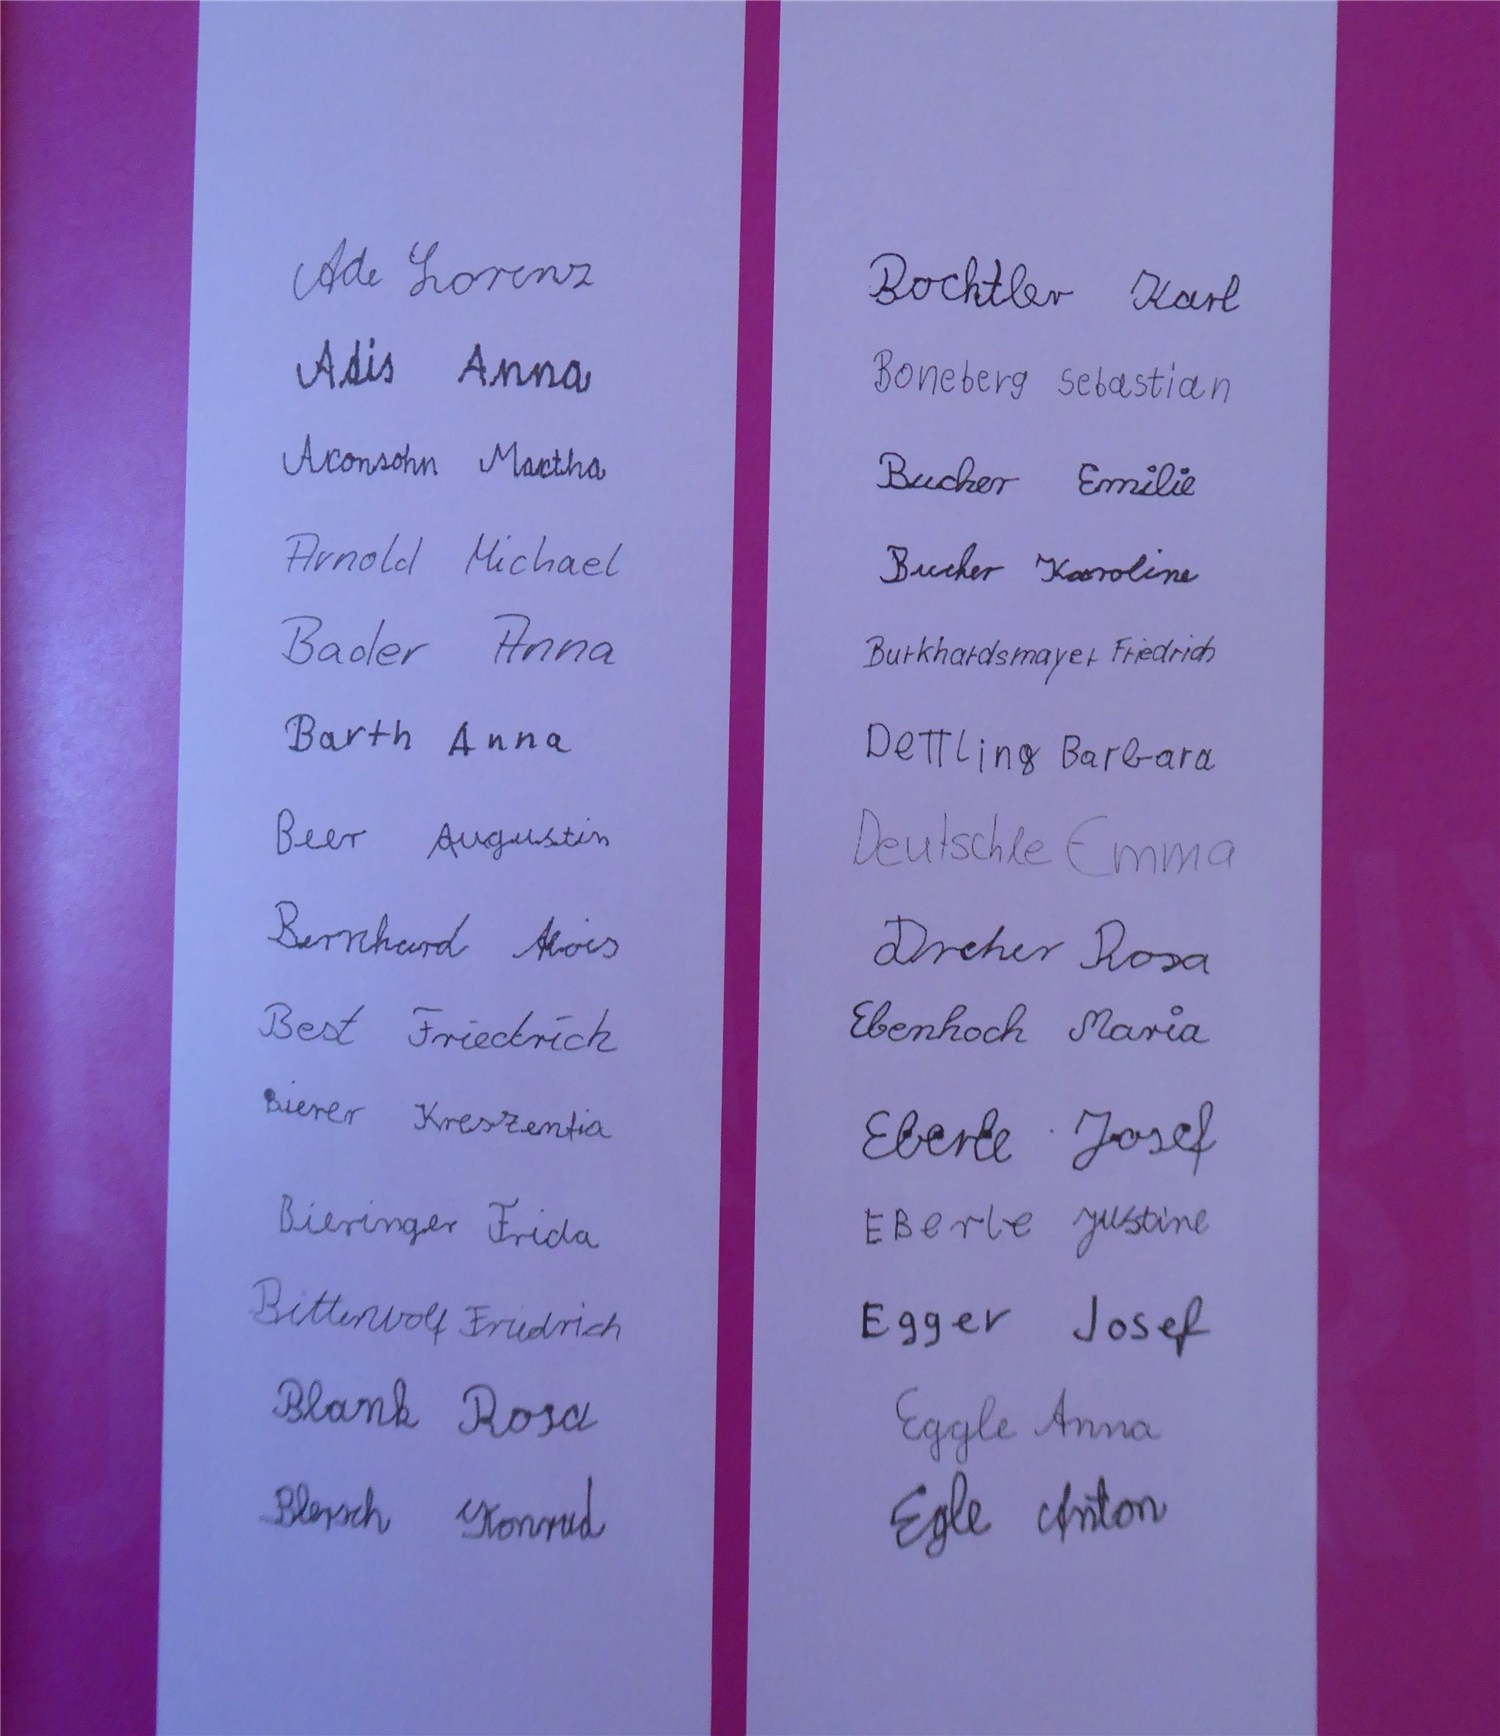 Ade Lorenz
Adis Anna
Aronsohn Martha
Arnold Michael
Bader Anna
Barth Anna
Beer Augustin
Bernhard Alois
Best Friedrich
Bierer Kreszentia
Bieringer Frida
Bitterwolf Friedrich
Blank Rosa
Blersch Konrad
Bochtler Karl
Boneberg Sebastian
Bucher Emilie
Bucher Karoline
Burkhardsmayer Friedrich
Dettling Barbara
Deutschle Emma
Dreher Rosa
Ebenhoch Maria
Eberle Josef
EBerle Justine
Egger Josef
Eggle Anna
Egle Anton